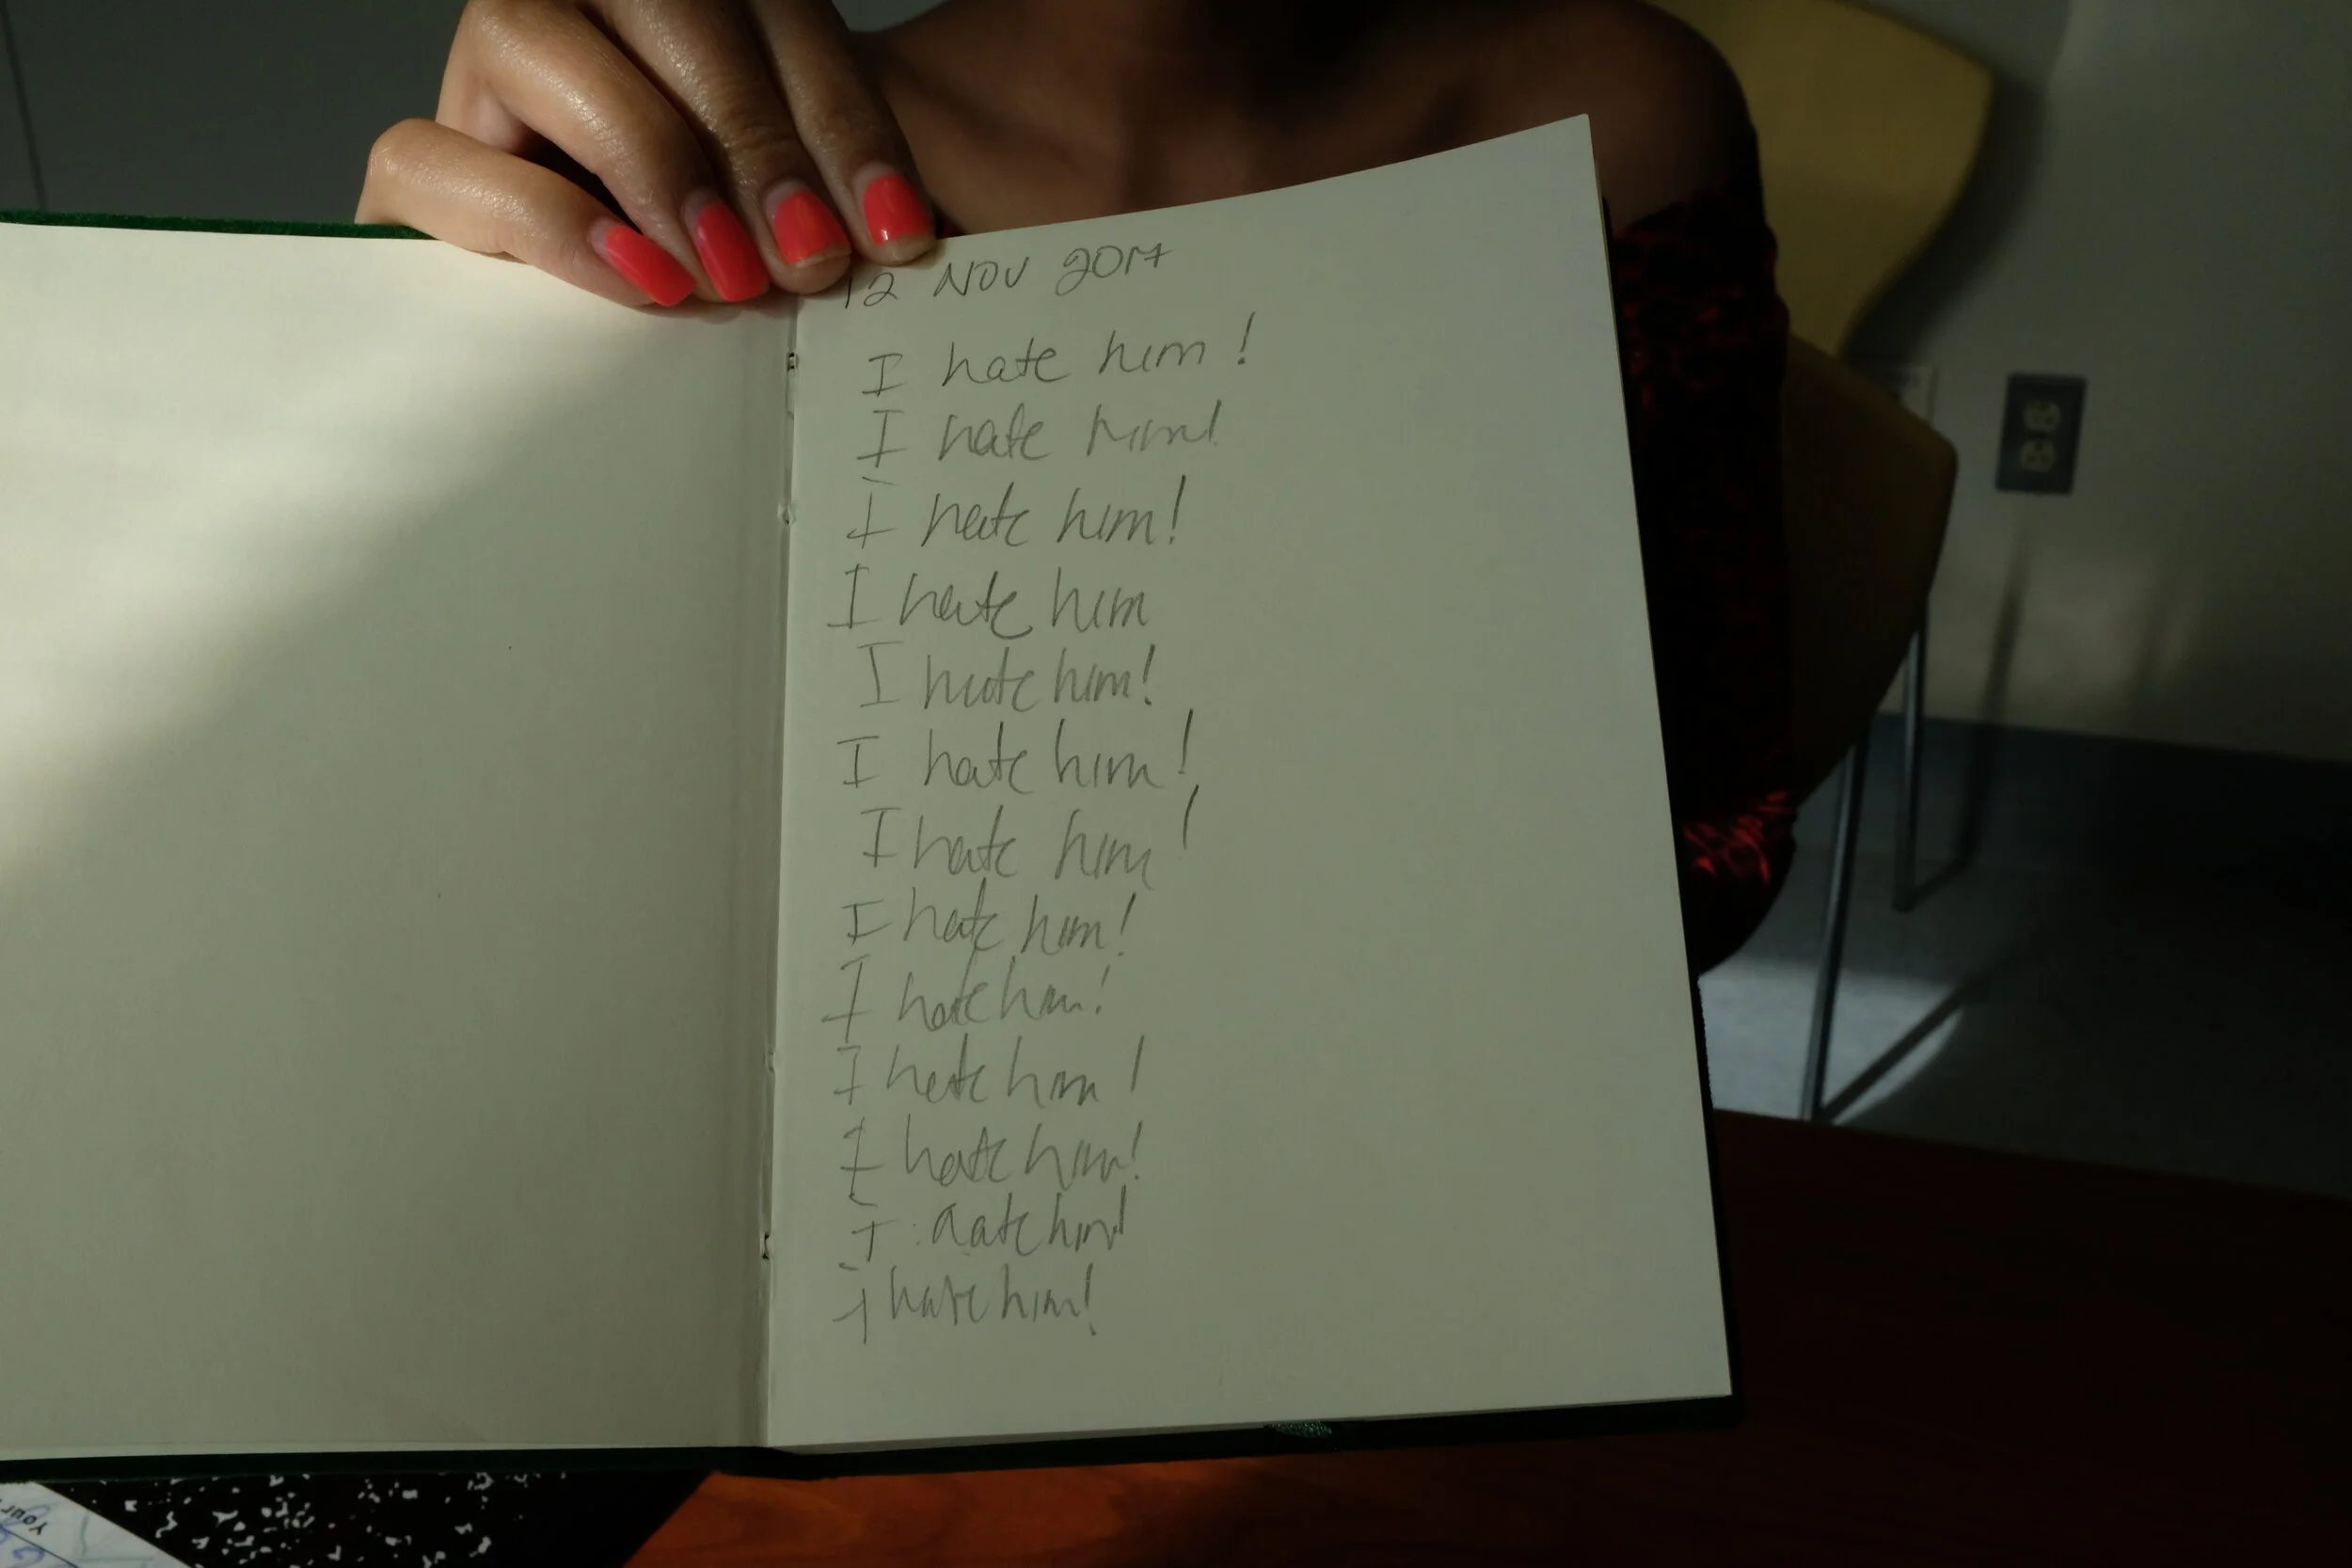 12 NOV 2017
I hate him!
I hate him!
I hate him!
I hate him
I hate him!
I hate him!
I hate him!
I hate him!
I hate him!
I hate him!
I hate him!
I aate him!
I hate him!
Your